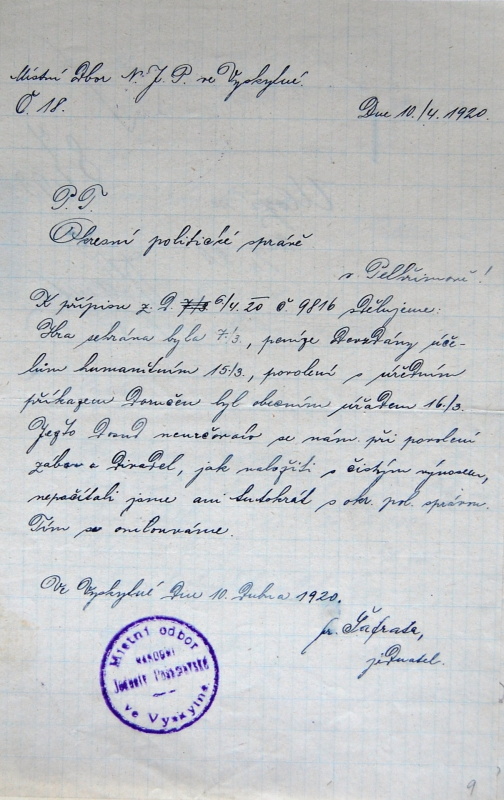 Místní odbor N. J. P. ve Vyskytné.
Č 18. Dne 10./4. 1920.
P. T.
Okresní politické správě
v Pelhřimově!
K přípisu z d. 7/3 6/4. 20 č 9816 sdělujeme:
Hra sehrána byla 7./3., peníze dovzdány úče-
lům humanitním 15/3., povolení s úředním
příkazem doručen byl obecním úřadem 16./3.
Jegto dosud neurčovalo se nám při povolení
zábav a divadel, jak naložiti s čistým výnosem,
nepočítali jsme ani tentokrát s okr. pol. správou.
Tím se omlouváme.
Ve Vyskytné dne 10. dubna 1920.
Šafrata,
jednatel.
Místní odbor
NÁRODNÍ
Jednoty Pošumavské
ve Vyskytné
9